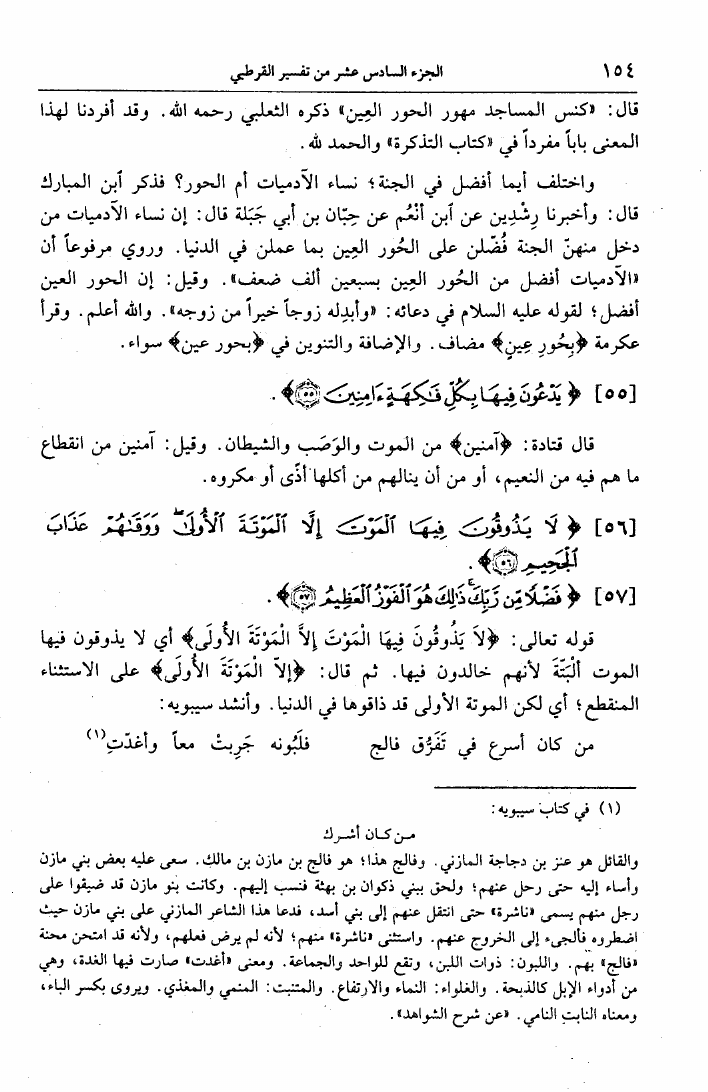 ١٥٤ الجزء السادس عشر من تفسير القرطبي
قال: «كنس المساجد مهور الحور العِين» ذكره الثعلبي رحمه الله. وقد أفردنا لهذا
المعنى باباً مفرداً في «كتاب التذكرة» والحمد لله.
واختلف أيما أفضل في الجنة؛ نساء الآدميات أم الحور؟ فذكر ٱبن المبارك
قال: وأخبرنا رِشْدِين عن ٱبن أنْعُم عن حِبّان بن أبي جَبَلة قال: إن نساء الآدميات من
دخل منهنّ الجنة فُضّلن على الحُور العِين بما عملن في الدنيا. وروي مرفوعاً أن
«الآدميات أفضل من الحُور العِين بسبعين ألف ضعف». وقيل: إن الحور العين
أفضل؛ لقوله عليه السلام في دعائه: «وأبدِله زوجاً خيراً من زوجه». والله أعلم. وقرأ
عكرمة ﴿بِحُورِ عِينٍ﴾ مضاف. والإضافة والتنوين في ﴿بحور عين﴾ سواء.
[٥٥] ﴿ يَدْعُونَ فِيهَا بِكُلِّ فَٰكِهَةٍ ءَامِنِينَ ٥٥﴾.
قال قتادة: ﴿آمنين﴾ من الموت والوَصَب والشيطان. وقيل: آمنين من انقطاع
ما هم فيه من النعيم، أو من أن ينالهم من أكلها أذًى أو مكروه.
[٥٦] ﴿ لَا يَذُوقُونَ فِيهَا ٱلْمَوْتَ إِلَّا ٱلْمَوْتَةَ ٱلْأُولَىٰ ۖ وَوَقَىٰهُمْ عَذَابَ
ٱلْجَحِيمِ ٥٦﴾.
[٥٧] ﴿ فَضْلًا مِّن رَّبِّكَ ۚ ذَٰلِكَ هُوَ ٱلْفَوْزُ ٱلْعَظِيمُ ٥٧﴾.
قوله تعالى: ﴿لاَ يَذُوقُونَ فِيهَا الْمَوْتَ إِلاَّ الْمَوْتَةَ الأُولَى﴾ أي لا يذوقون فيها
الموت ألْبَتّةَ لأنهم خالدون فيها. ثم قال: ﴿إِلاّ الْمَوْتَةَ الأُولَى﴾ على الاستثناء
المنقطع؛ أي لكن الموتة الأولى قد ذاقوها في الدنيا. وأنشد سيبويه:
من كان أسرع في تَفَرُّق فالج فلَبُونه جَرِبتْ معاً وأغدّتِ(١)
(١) في كتاب سيبويه:
من كان أشرك
والقائل هو عنز بن دجاجة المازني. وفالج هذا؛ هو فالج بن مازن بن مالك. سعى عليه بعض بني مازن
وأساء إليه حتى رحل عنهم؛ ولحق ببني ذكوان بن بهثة فنسب إليهم. وكانت بنو مازن قد ضيقوا على
رجل منهم يسمى «ناشرة» حتى انتقل عنهم إلى بني أسد، فدعا هذا الشاعر المازني على بني مازن حيث
اضطروه فألجىء إلى الخروج عنهم. واستثنى «ناشرة» منهم؛ لأنه لم يرض فعلهم، ولأنه قد امتحن محنة
«فالج» بهم. واللبون: ذوات اللبن، وتقع للواحد والجماعة. ومعنى «أغدت» صارت فيها الغدة، وهي
من أدواء الإبل كالذبحة. والغلواء: النماء والارتفاع. والمتنبت: المنمي والمغذي. ويروى بكسر الباء،
ومعناه النابت النامي. «عن شرح الشواهد».